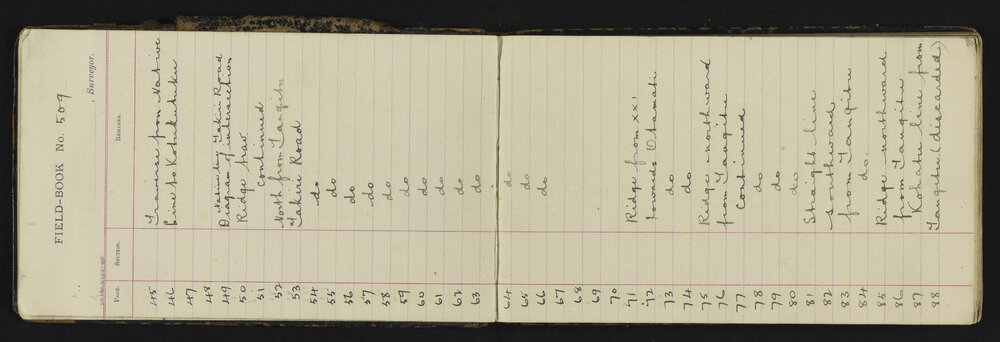 FIELD-BOOK No. 509
, Surveyor.
PAGE. SECTION. REMARKS.
45 Traverse from Native
46 Line to Kotukutuku
47
48 Takiri Road
49 Diagram of intersection
50 Ridge trav
51 Continued
52 North from Taugitu
53 Takiri Road
54 do
55 do
56 do
57 do
58 do
59 do
60 do
61 do
62 do
63 do
64 do
65 do
66 do
67
68
69
70
71 Ridge from XX'
72 towards Otamati
73 do
74 do
75 Ridge northward
76 from Taugitu
77 Continued
78 do
79 do
80 do
81 Straight line
82 southward
83 from Taugitu
84 do.
85 Ridge northward
86 from Taugitu
87 Kohatu line from
88 Taugitu (discarded)